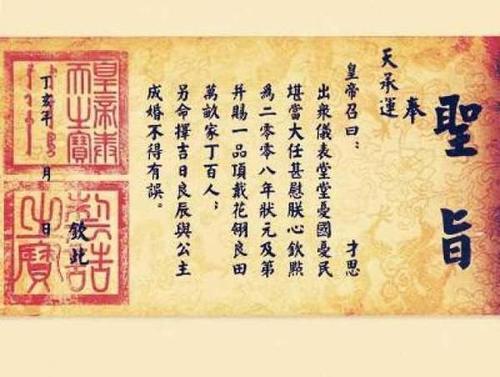 聖旨
奉
天承運
皇帝召曰：
才思
出衆儀表堂堂憂國憂民
堪當大任甚慰朕心欽點
為二零零八年狀元及第
并賜一品頂戴花翎良田
萬畝家丁百人；
另命擇吉日良辰與公主
成婚不得有誤。
欽此
丁亥年 月 日
皇帝奉
天之寶
制誥
之寶